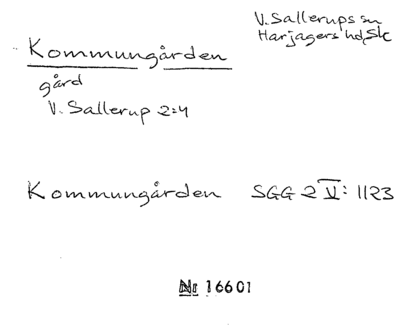 V. Sallerups sn
Harjagers hd, Sk
Kommungården
gård
V. Sallerup 2:4
Kommungården SGG 2 V: 1123
Nr 16601